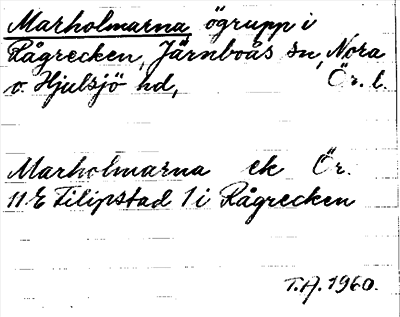 Marholmarna ögrupp i
Rågrecken, Järnboås sn, Nora
o. Hjulsjö hd, Ör. l.
Marholmarna ek Ör.
11 E Filipstad 1 i Rågrecken
T.A. 1960.